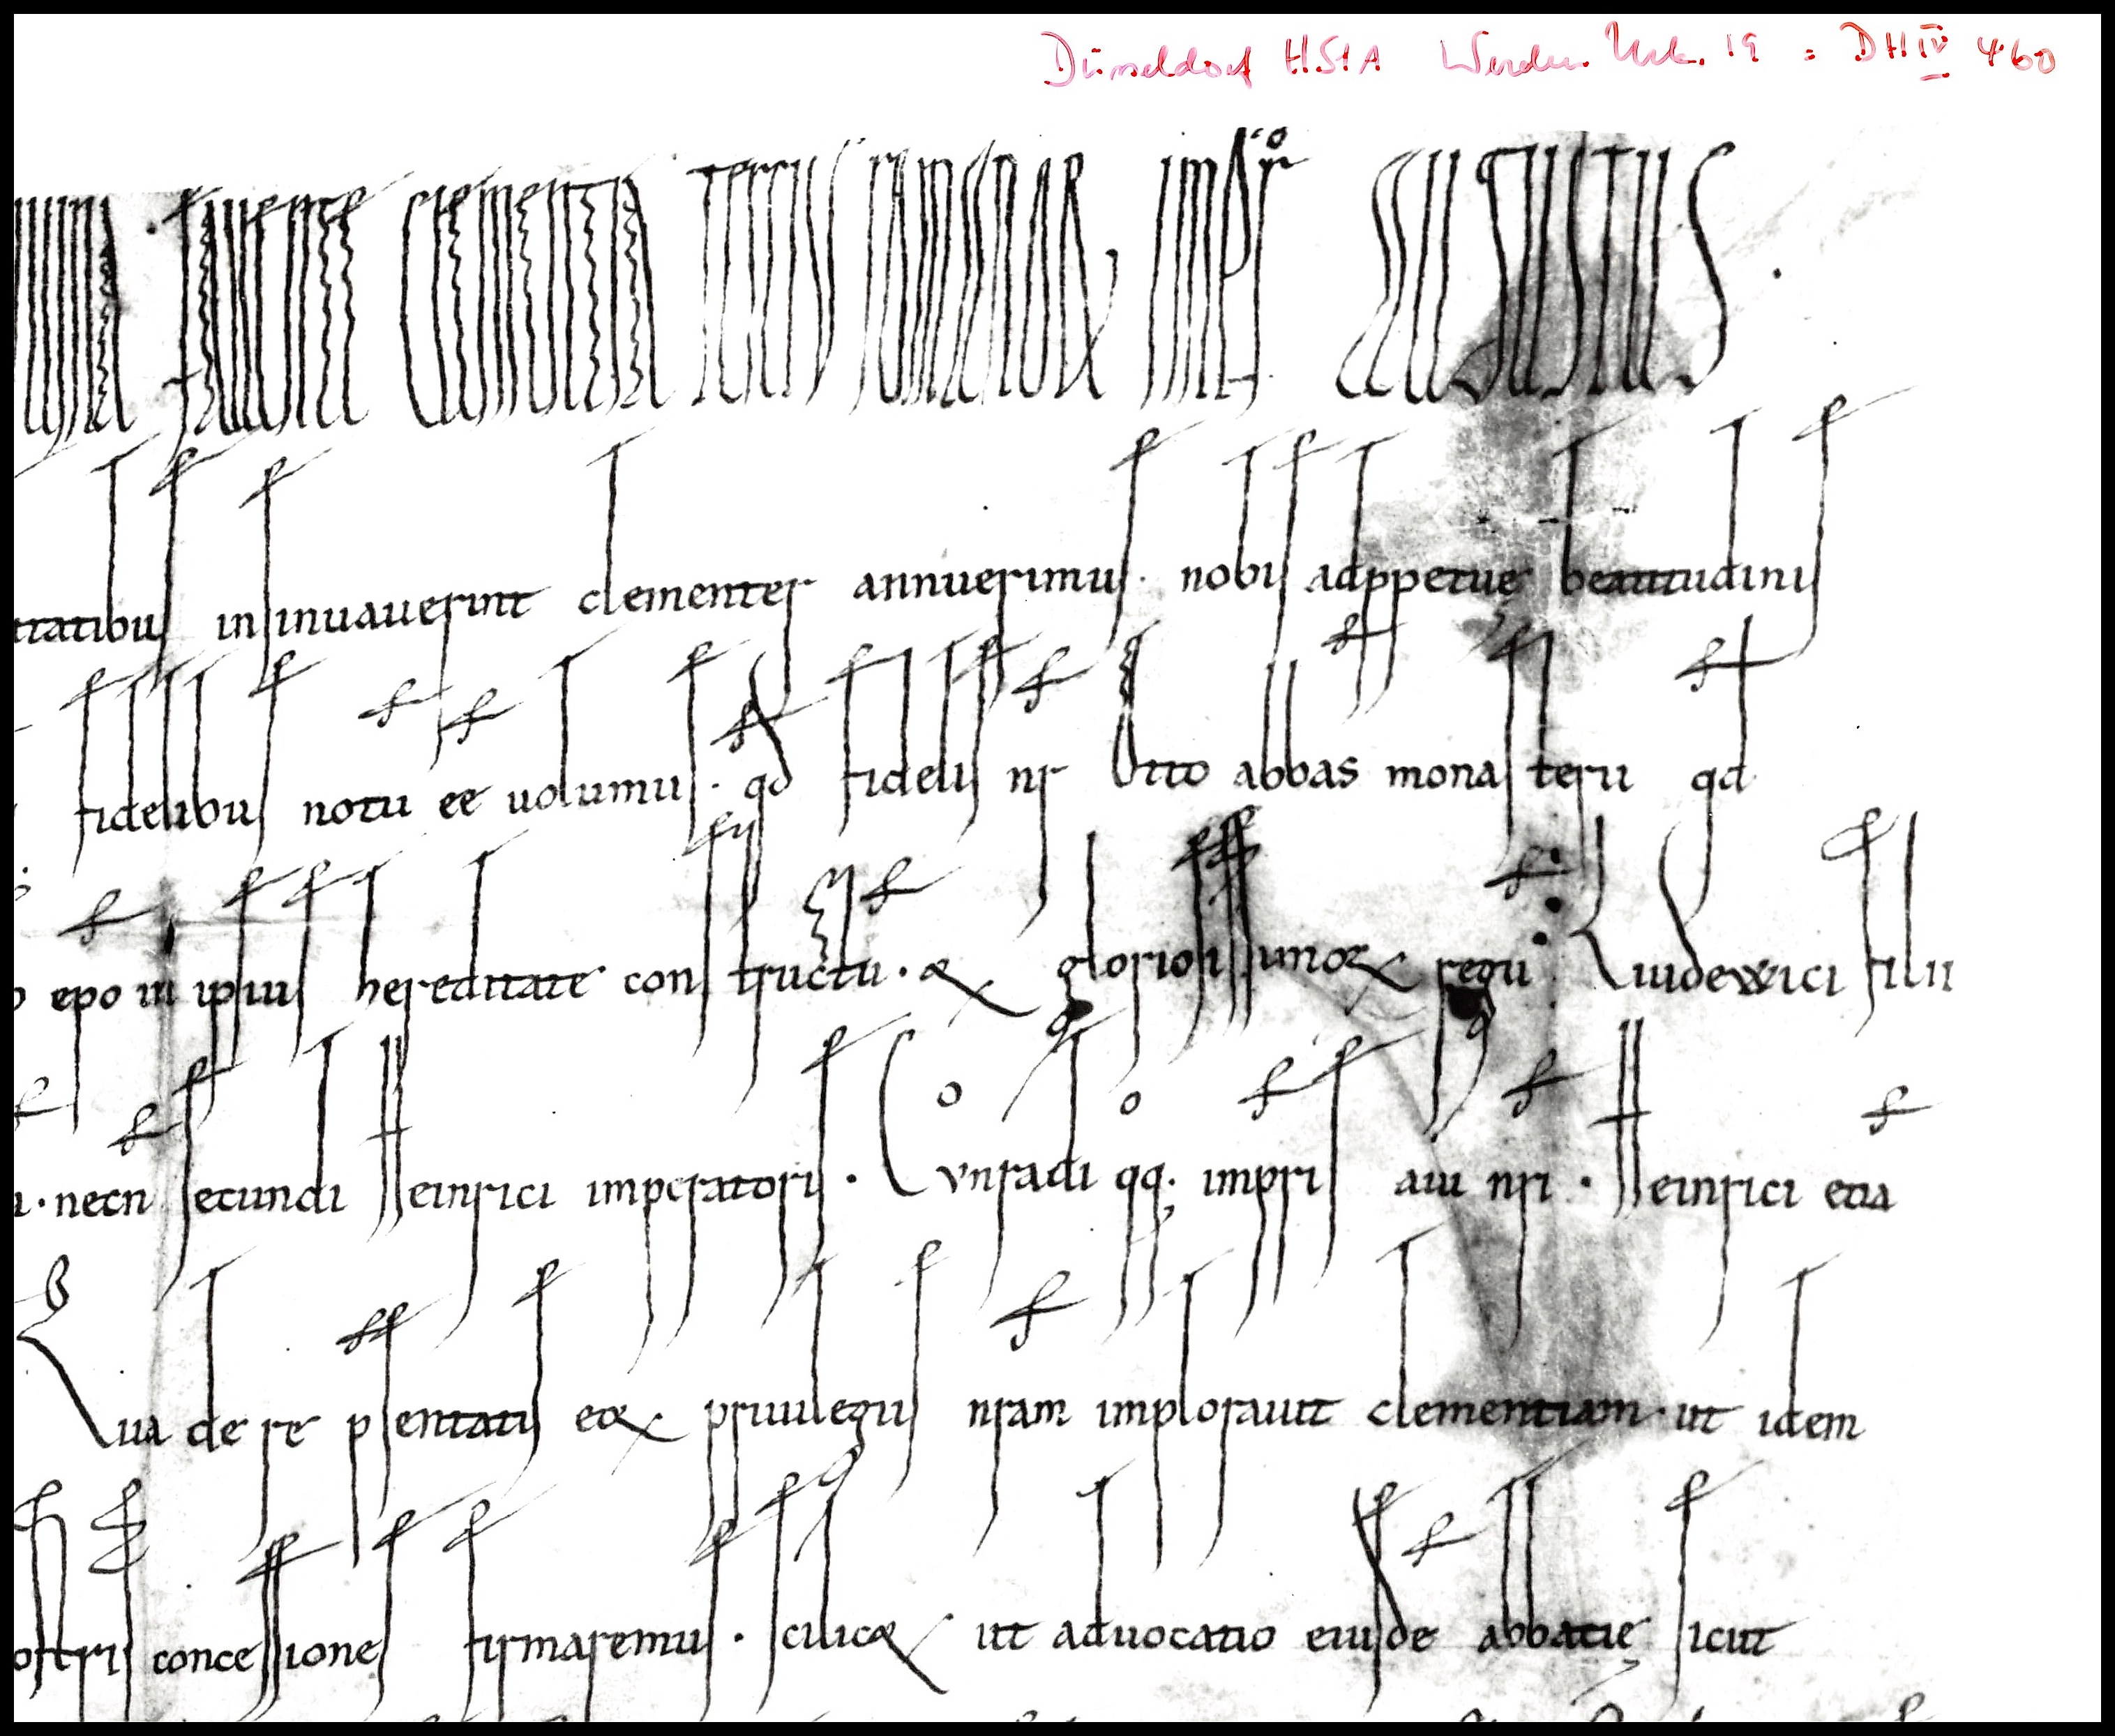 Düsseldorf HStA Werden Urk. 19 = DH IV 460
fauente clementia tercius romanor imp̅r̅ augustus .
tatibus insinuauerint clementer annuerimus . nobis ad ppetuę beatitudinis
fidelibus notu ee uolumus . qd fidelis nr Otto abbas monasterii qd
epo in ipsius hereditate constructu . & gloriosissimor regu : Liudewici filii
. necn secundi Heinrici imperatoris . Cvnradi qq. impris aui nri . Heinrici etia
Qua de re psentatis eor priuilegiis nram implorauit clementiam . ut idem
concessiones firmaremus . scilic& ut aduocatio eiusde abbatię sicut